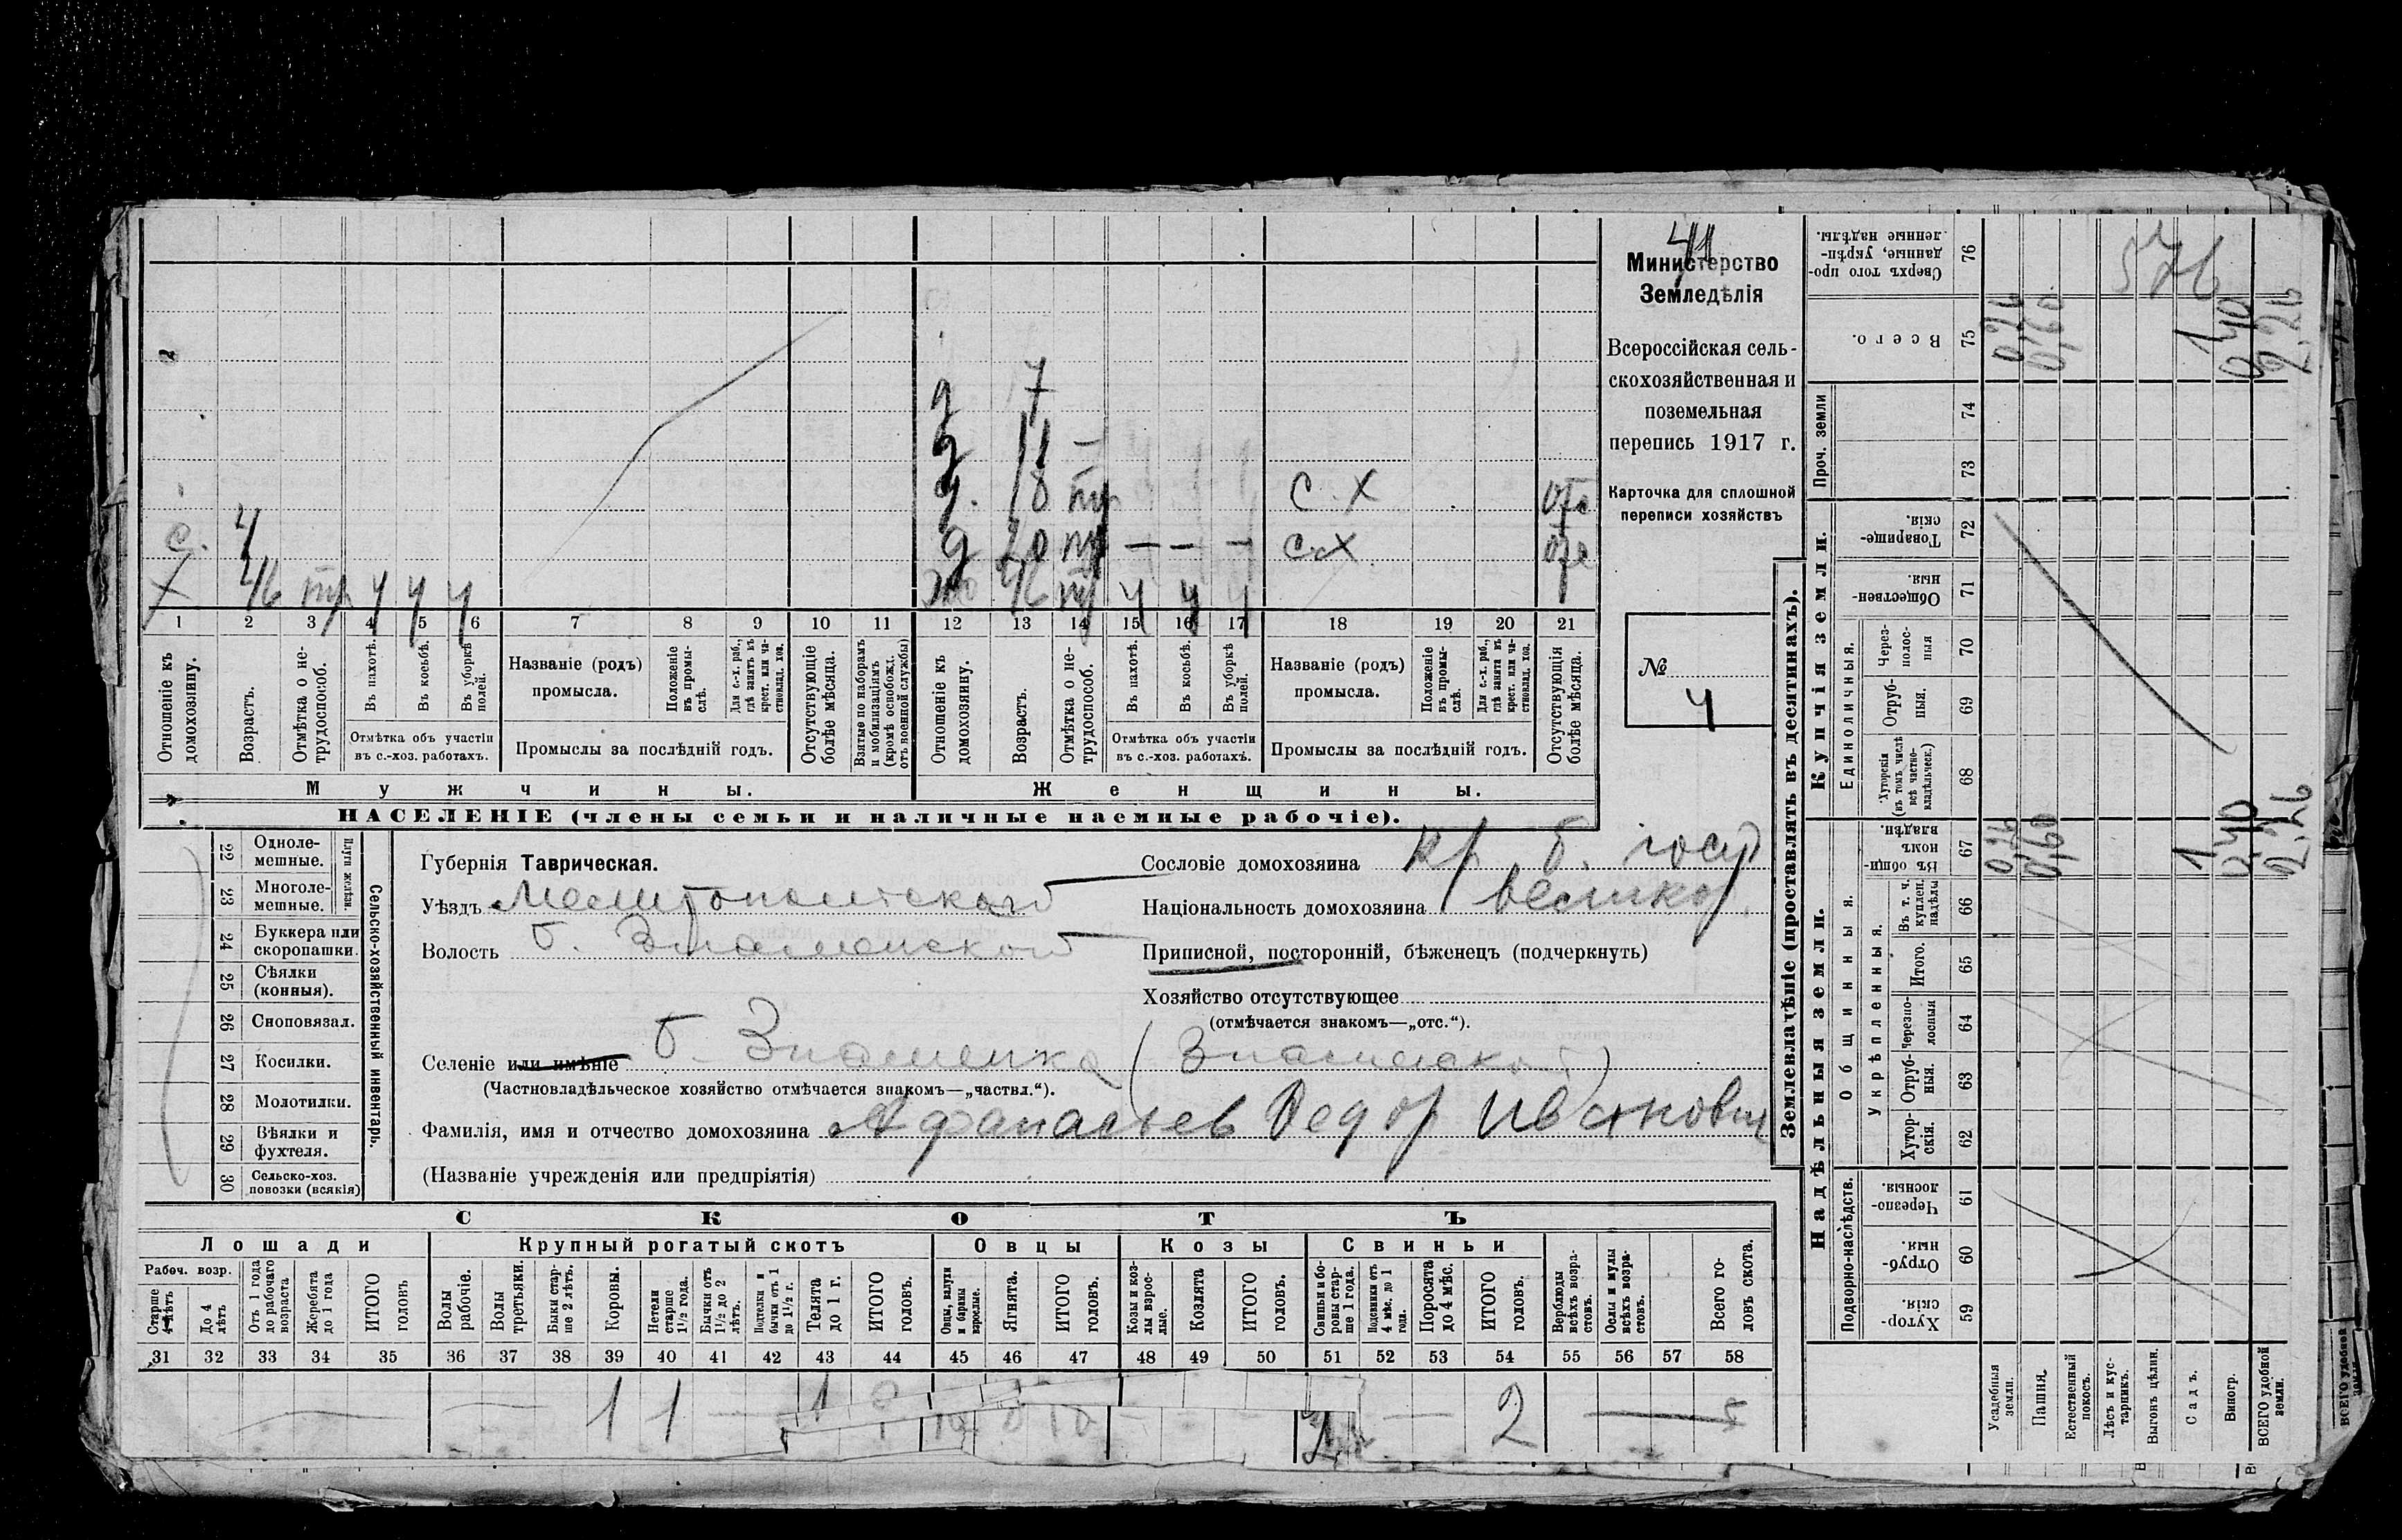 41
Министерство
Земледѣлія
Всероссійская сель-
скохозяйственная и
поземельная
перепись 1917 г.
Карточка для сплошной
переписи хозяйствъ
№
4
7
11 —
18 тр С.Х
с. 4 20 тр — — — С.Х
Х 46 тр у у у 46 тр у у у
1 2 3 4 5 6 7 8 9 10 11 12 13 14 15 16 17 18 19 20 21
Отношеніе къ домохозяину.
Возрастъ.
Отмѣтка о не-трудоспособ.
Въ пахотѣ.
Въ косьбѣ.
Въ уборкѣ полей.
Отмѣтка объ участіи въ с.-хоз. работахъ.
Названіе (родъ) промысла.
Положеніе въ промы-слѣ.
Для с.-х. раб., гдѣ занятъ въ крест. или ча-стновлад. хоз.
Промыслы за послѣдній годъ.
Отсутствующіе болѣе мѣсяца.
Взятые по наборамъ и мобилизаціямъ (кромѣ освобожд. отъ военной службы)
Отношеніе къ домохозяину.
Возрастъ.
Отмѣтка о не-трудоспособ.
Въ пахотѣ.
Въ косьбѣ.
Въ уборкѣ полей.
Отмѣтка объ участіи въ с.-хоз. работахъ.
Названіе (родъ) промысла.
Положеніе въ промы-слѣ.
Для с.-х. раб., гдѣ занята въ крест. или ча-стновлад. хоз.
Промыслы за послѣдній годъ.
Отсутствующія болѣе мѣсяца.
Мужчины. Женщины.
НАСЕЛЕНІЕ (члены семьи и наличные наемные рабочіе).
22 Одноле-мешные.
23 Многоле-мешные.
Плуги желѣзн.
24 Буккера или скоропашки.
25 Сѣялки (конныя).
26 Сноповязал.
27 Косилки.
28 Молотилки.
29 Вѣялки и фухтеля.
30 Сельско-хоз. повозки (всякія)
Сельско-хозяйственный инвентарь.
Губернія Таврическая.
Уѣздъ Мелитопольскаго
Волость Б. Знаменской
Селеніе или имѣніе Б. Знаменка (Знаменской)
(Частновладѣльческое хозяйство отмѣчается знакомъ—„частвл.“).
Фамилія, имя и отчество домохозяина Афанасьев Федор Иванович
(Названіе учрежденія или предпріятія)
Сословіе домохозяина кр. б. госуд
Національность домохозяина великор.
Приписной, посторонній, бѣженецъ (подчеркнуть)
Хозяйство отсутствующее
(отмѣчается знакомъ—„отс.“).
СКОТЪ
Лошади Крупный рогатый скотъ Овцы Козы Свиньи
Рабоч. возр.
Старше 4 лѣтъ
До 4 лѣтъ
Отъ 1 года до рабочаго возраста
Жеребята до 1 года
ИТОГО головъ
Волы рабочіе.
Волы третьяки.
Быки стар-ше 2 лѣтъ.
Коровы.
Нетели старше 1½ года.
Бычки отъ 1½ до 2 лѣтъ.
Подтелки и бычки отъ 1 до 1½ г.
Телята до 1 г.
ИТОГО головъ.
Овцы, валухи и бараны взрослые.
Ягнята.
ИТОГО головъ.
Козы и коз-лы взрос-лые.
Козлята
ИТОГО головъ.
Свиньи и бо-ровы стар-ше 1 года.
Подсвинки отъ 4 мѣс. до 1 года.
Поросята до 4 мѣс.
ИТОГО головъ.
Верблюды всѣхъ возра-стовъ.
Ослы и мулы всѣхъ возра-стовъ.
Всего го-ловъ скота.
31 32 33 34 35 36 37 38 39 40 41 42 43 44 45 46 47 48 49 50 51 52 53 54 55 56 57 58
1 1 — 1 2 — 2 — 5
Землевладѣніе (проставлять въ десятинахъ).
Надѣльныя земли. Купчія земли. Проч. земли
Подворно-наслѣдств. Общинныя. Укрѣпленныя. Единоличныя.
Хутор-скія. 59
Отруб-ныя. 60
Черезпо-лосныя. 61
Хутор-скія. 62
Отруб-ныя. 63
Черезпо-лосныя 64
Итого. 65
Въ т. ч. куплен. надѣлы 66
Въ общин-номъ владѣн. 67
Хуторскія (въ томъ числѣ всѣ частно-владѣльческ.) 68
Отруб-ныя. 69
Через-полос-ныя 70
Обществен-ныя. 71
Товарище-скія. 72
73
74
Всего. 75
Сверхъ того про-данные, укрѣп-ленные надѣлы. 76
576
Усадебныя земли. 0,26 0,26
Пашня. 0,60 0,60
Естественный покосъ.
Лѣсъ и кус-тарникъ.
Выгонъ цѣлин.
Садъ. 1 1
Виногр. 0,40 0,40
ВСЕГО удобной земли. 2,26 2,26